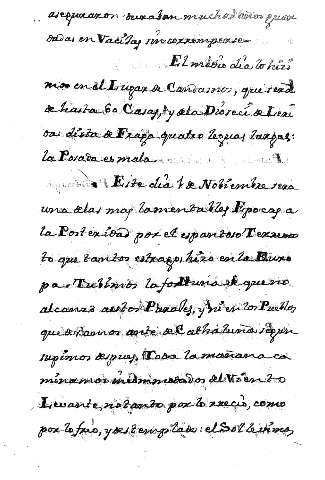 aseguraron duraban muchos años guar
dadas en Vacijas sin corromperse.
El medio dia lo hizi
mos en el Lugar de Candasnos, que será
de hasta 60 Casas, y de la Diocesi de Leri
da: dista de Fraga quatro leguas largas:
la Posada es mala.
Este dia 1 de Noviembre sera
una de las mas lamentables Epocas a
la Posteridad por el espantoso Terremo
to que tantos estragos hizo en la Euro
pa. Tubimos la fortuna de que no
alcanzó a estos Parajes, y ni en los Pueblos
que dexamos antes de Cathaluña segun
supimos despues. Toda la mañana ca
minamos incommodados del Viento
Levante, no tanto por lo rrecio, como
por lo frio, y destemplado: el Sol le vimos